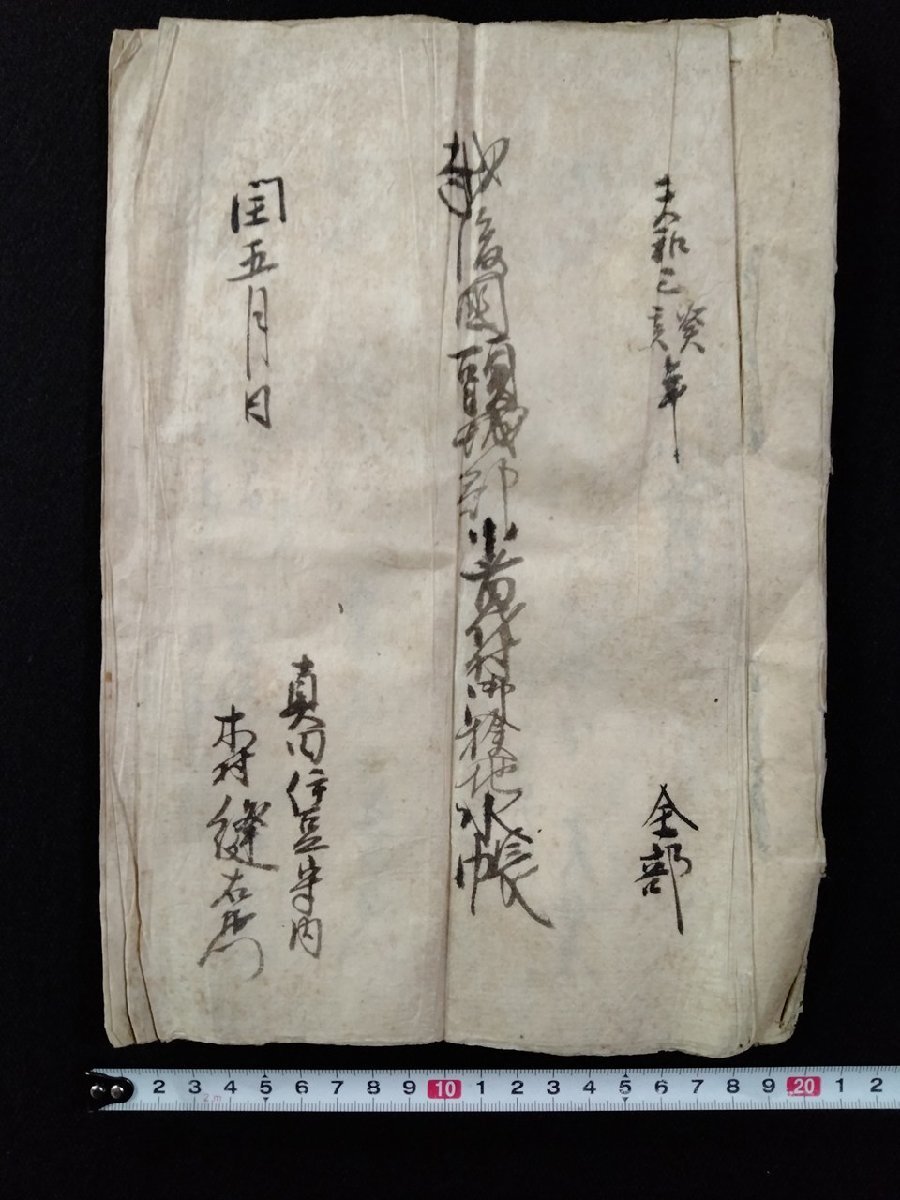 天和三癸亥年
全部
越後國頸城郡小村御検地水帳
真田伊豆守内
木村縫右衛門
閏五月日
2 3 4 5 6 7 8 9 10 1 2 3 4 5 6 7 8 9 20 1 2
2m